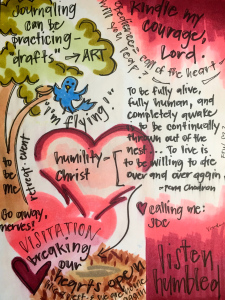 Journaling
can be
"practicing-
drafts" → ART
Kindle my
courage,
Lord.
of the heart
"I'm flying!"
To be fully alive,
fully human, and
completely awake
is to be continually
thrown out of the
nest... To live is
to be willing to die
over and over again.
-Pema Chodron
humility-[
Christ
to
be
me
retreat event
Go away,
nerves!
calling me:
JOC
VISITATION
breaking
our
hearts open
listen
humbled